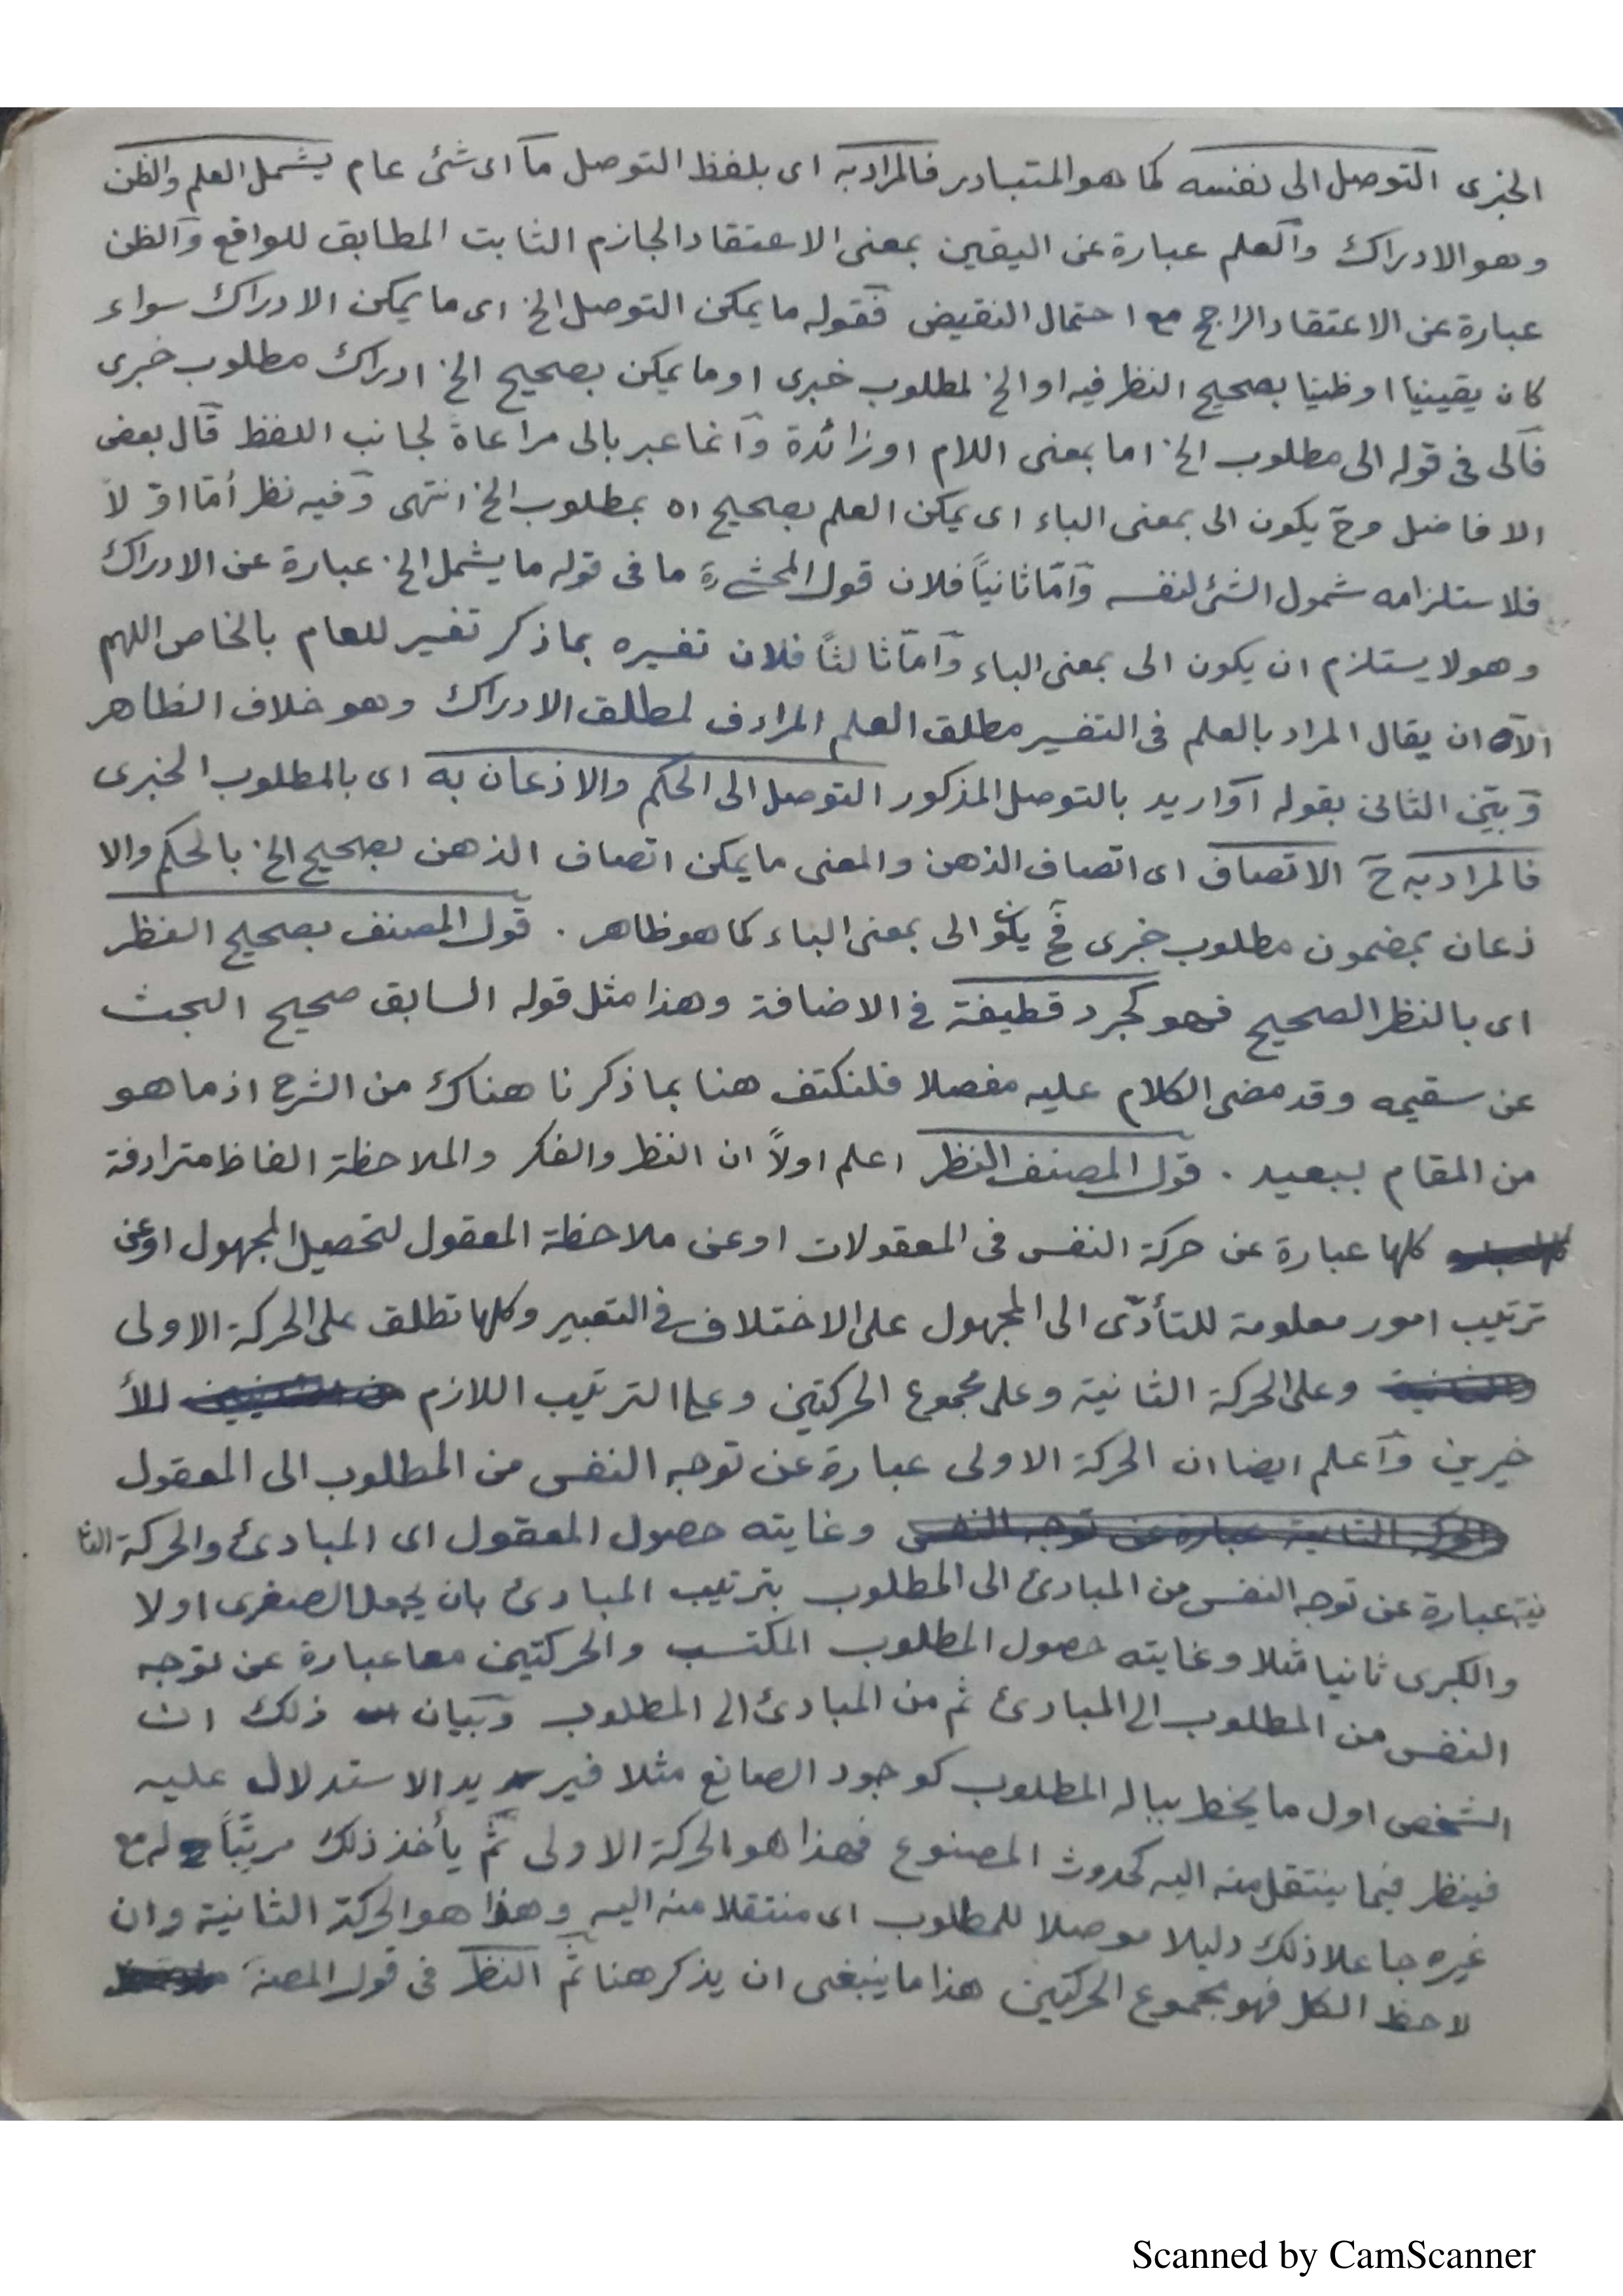 الخبرى التوصل الى نفسه كما هو المتبادر فالمراد به اى بلفظ التوصل ما اى شئ عام يشمل العلم والظن
وهو الادراك والعلم عبارة عن اليقين بمعنى الاعتقاد الجازم الثابت المطابق للواقع والظن
عبارة عن الاعتقاد الراجح مع احتمال النقيض فقوله ما يمكن التوصل الخ اى ما يمكن الادراك سواء
كان يقينيا او ظنيا بصحيح النظر فيه او الخ لمطلوب خبرى او ما يمكن بصحيح الخ ادراك مطلوب خبرى
فالى فى قوله الى مطلوب الخ اما بمعنى اللام او زائدة وانما عبر بالى مراعاة لجانب اللفظ قال بعض
الافاضل وح يكون الى بمعنى الباء اى يمكن العلم بصحيح اه بمطلوب الخ انتهى وفيه نظر أمّا اوّلاً
فلاستلزامه شمول الشئ لنفسه وأمّا ثانياً فلان قول المحشى رة ما فى قوله ما يشمل الخ عبارة عن الادراك
وهو لا يستلزم ان يكون الى بمعنى الباء وأمّا ثالثاً فلان تفسيره بما ذكر تفسير للعام بالخاص اللهم
الا ان يقال المراد بالعلم فى التفسير مطلق العلم المرادف لمطلق الادراك وهو خلاف الظاهر
وبيّن الثانى بقوله او اريد بالتوصل المذكور التوصل الى الحكم والاذعان به اى بالمطلوب الخبرى
فالمراد به ح الاتصاف اى اتصاف الذهن والمعنى ما يمكن اتصاف الذهن بصحيح الخ بالحكم والا
ذعان بمضمون مطلوب خبرى فح يكون الى بمعنى الباء كما هو ظاهر . قول المصنف بصحيح النظر
اى بالنظر الصحيح فهو كجرد قطيفة فى الاضافة وهذا مثل قوله السابق صحيح البحث
عن سقيمه وقد مضى الكلام عليه مفصلا فلنكتف هنا بما ذكرنا هناك من الشرح اذ ما هو
من المقام ببعيد . قول المصنف النظر اعلم اولاً ان النظر والفكر والملاحظة الفاظ مترادفة
كلها عبارة عن حركة النفس فى المعقولات او عن ملاحظة المعقول لتحصيل المجهول او عن
ترتيب امور معلومة للتأدّى الى المجهول على الاختلاف فى التعبير وكلها تطلق على الحركة الاولى
وعلى الحركة الثانية وعلى مجموع الحركتين وعلى الترتيب اللازم للأ
خيرين واعلم ايضا ان الحركة الاولى عبارة عن توجه النفس من المطلوب الى المعقول
والحركة الثانية عبارة عن توجه النفس وغايته حصول المعقول اى المبادئ والحركة الثا
نية عبارة عن توجه النفس من المبادئ الى المطلوب بترتيب المبادئ بان يجعل الصغرى اولا
والكبرى ثانيا مثلا وغايته حصول المطلوب المكتسب والحركتين معا عبارة عن توجه
النفس من المطلوب الى المبادئ ثم من المبادئ الى المطلوب وبيان ذلك ان
الشخص اول ما يخطر بباله المطلوب كوجود الصانع مثلا فيريد الاستدلال عليه
فينظر فيما ينتقل منه اليه كحدوث المصنوع فهذا هو الحركة الاولى ثمّ يأخذ ذلك مرتّباً له مع
غيره جاعلا ذلك دليلا موصلا للمطلوب اى منتقلا منه اليه وهذا هو الحركة الثانية وان
لاحظ الكل فهو مجموع الحركتين هذا ما ينبغى ان يذكر هنا ثمّ النظر فى قول المصنف